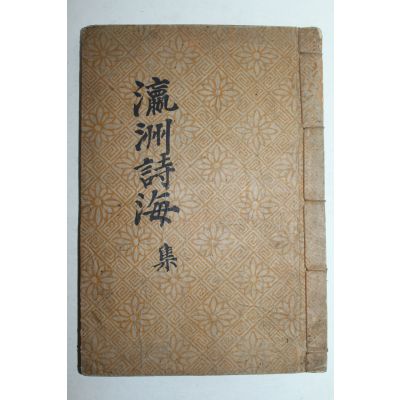 瀛洲詩海 集